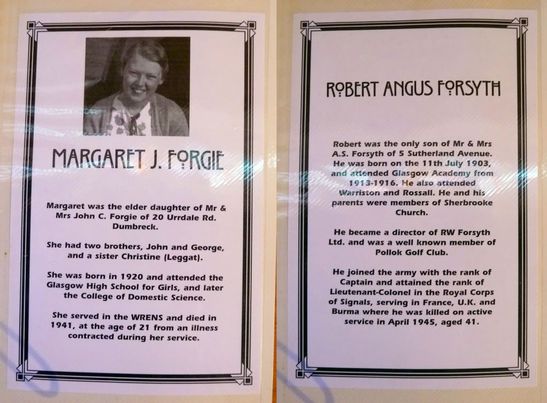 MARGARET J. FORGIE
Margaret was the elder daughter of Mr &
Mrs John C. Forgie of 20 Urrdale Rd.
Dumbreck.
She had two brothers, John and George,
and a sister Christine (Leggat).
She was born in 1920 and attended the
Glasgow High School for Girls, and later
the College of Domestic Science.
She served in the WRENS and died in
1941, at the age of 21 from an illness
contracted during her service.
ROBERT ANGUS FORSYTH
Robert was the only son of Mr & Mrs
A.S. Forsyth of 5 Sutherland Avenue.
He was born on the 11th July 1903,
and attended Glasgow Academy from
1913-1916. He also attended
Warriston and Rossall. He and his
parents were members of Sherbrooke
Church.
He became a director of RW Forsyth
Ltd. and was a well known member of
Pollok Golf Club.
He joined the army with the rank of
Captain and attained the rank of
Lieutenant-Colonel in the Royal Corps
of Signals, serving in France, U.K. and
Burma where he was killed on active
service in April 1945, aged 41.